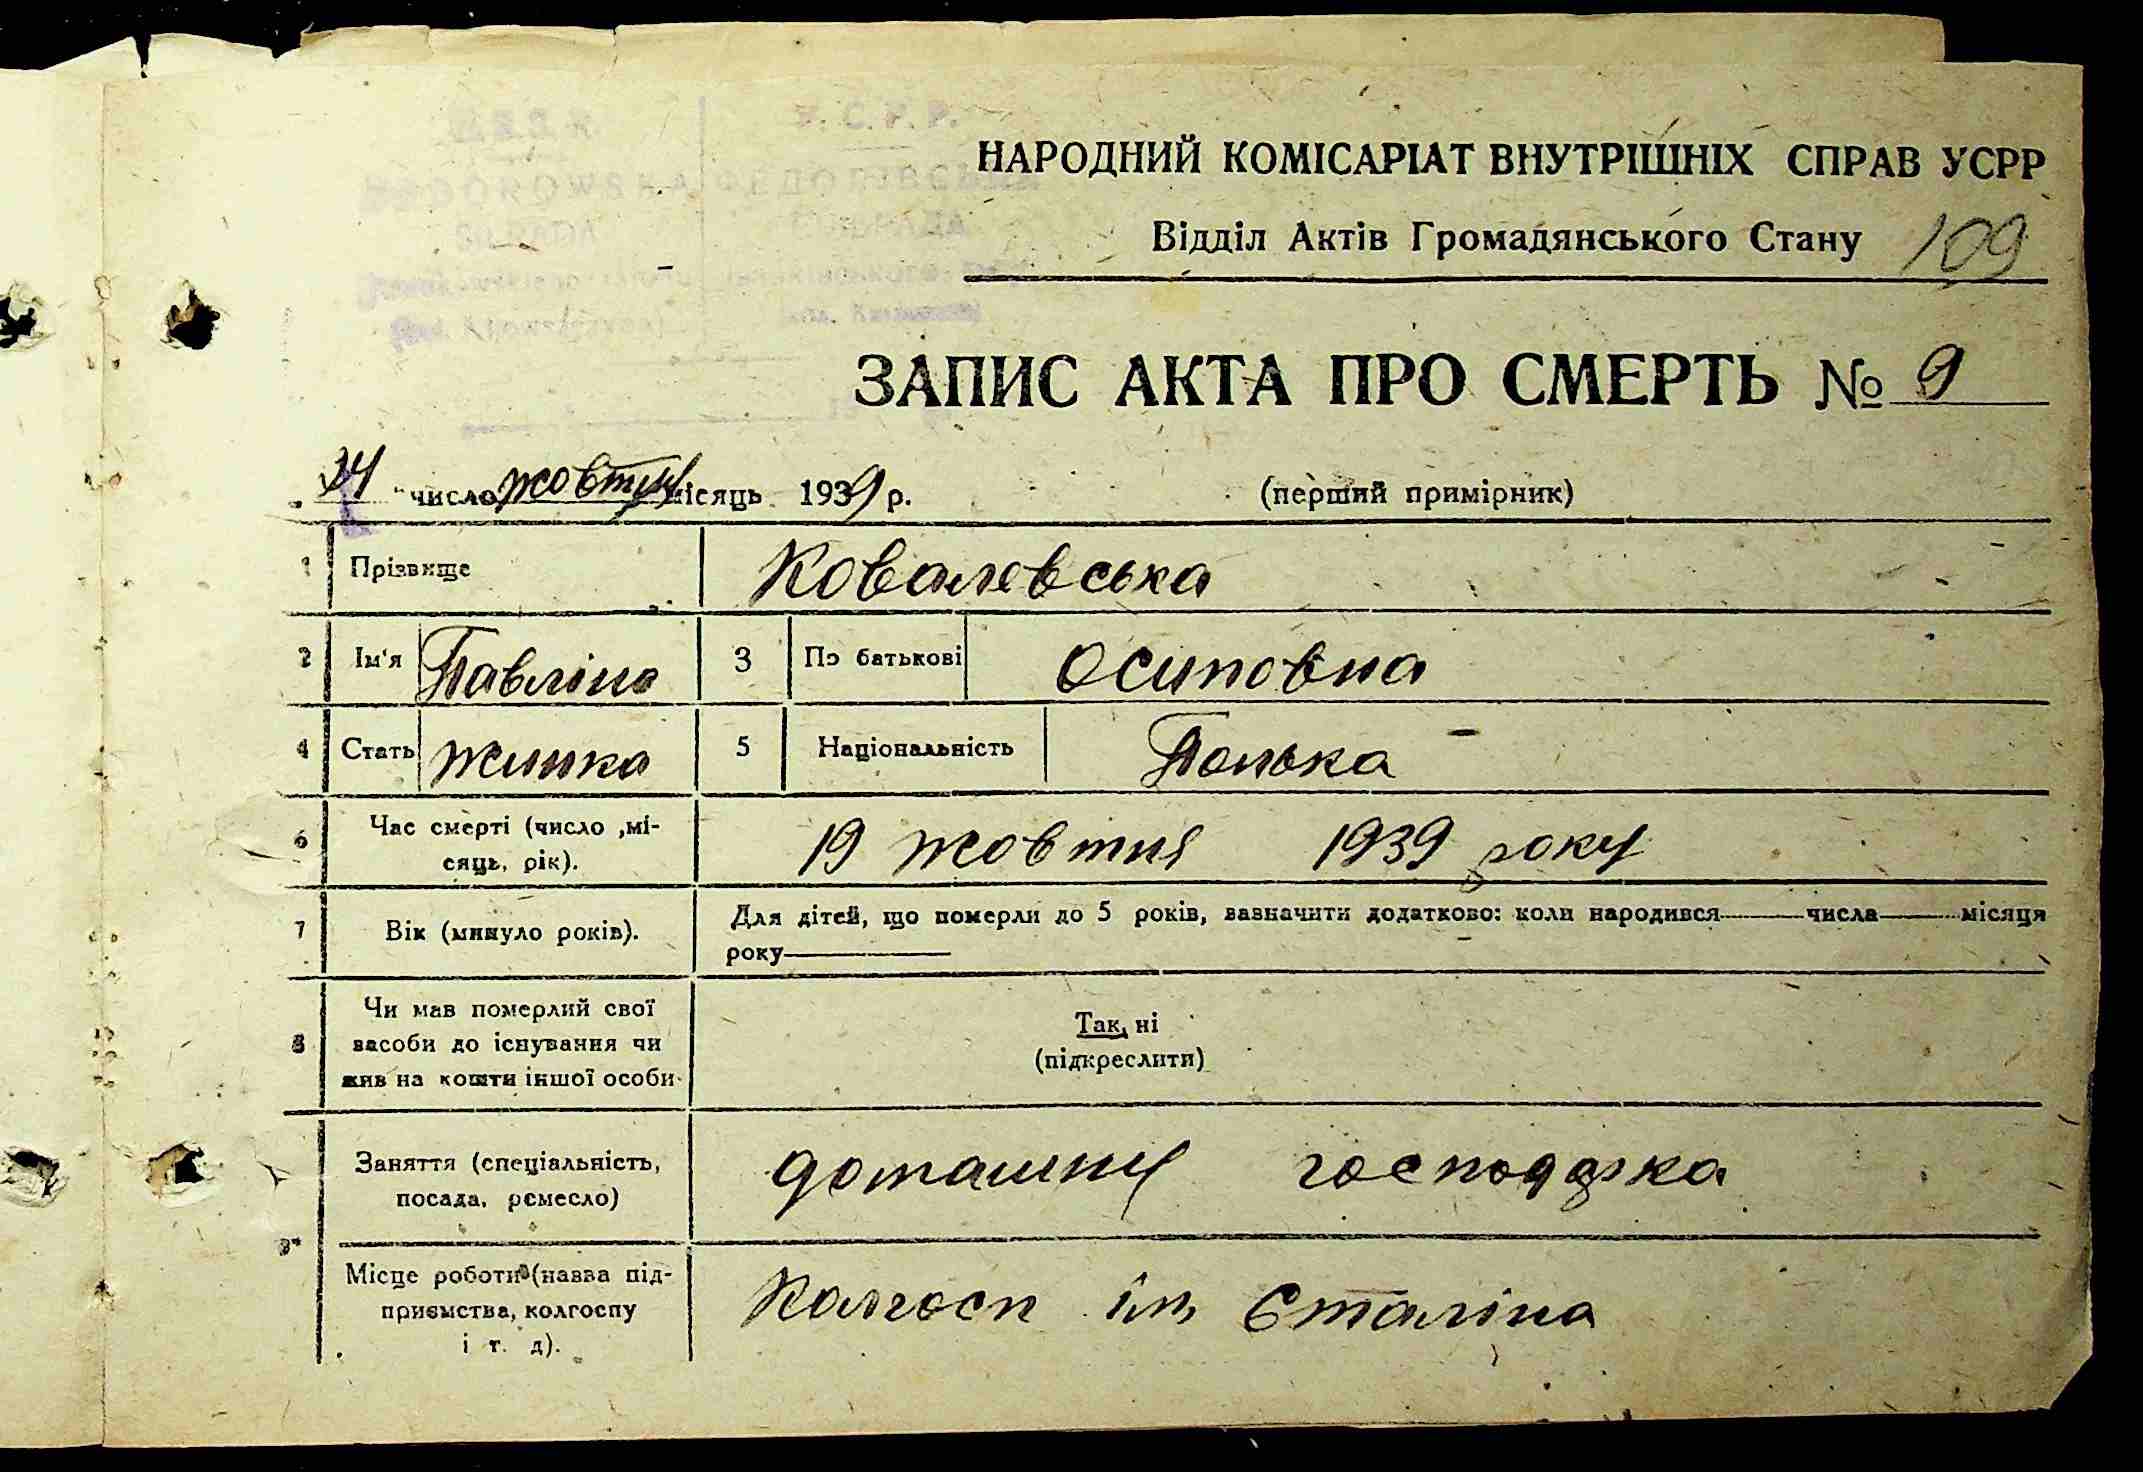 У. С. Р. Р.
НАРОДНИЙ КОМІСАРІАТ ВНУТРІШНІХ СПРАВ УСРР
Відділ Актів Громадянського Стану 109
ЗАПИС АКТА ПРО СМЕРТЬ № 9
24 число жовтня місяць 1939 р. (перший примірник)
1 Прізвище Ковалевська
2 Ім'я Павліна 3 По батькові Осиповна
4 Стать жинка 5 Національність Полька
6 Час смерті (число ,мі-
сяць, рік). 19 жовтня 1939 року
7 Вік (минуло років). Для дітей, що померли до 5 років, зазначити додатково: коли народився числа місяця
року
8 Чи мав померлий свої
засоби до існування чи
жив на кошти іншої особи
Так, ні
(підкреслити)
Заняття (спеціальність,
посада, ремесло) господарка
9
Місце роботи (назва під-
приємства, колгоспу
і т. д). Колгосп ім, Сталіна